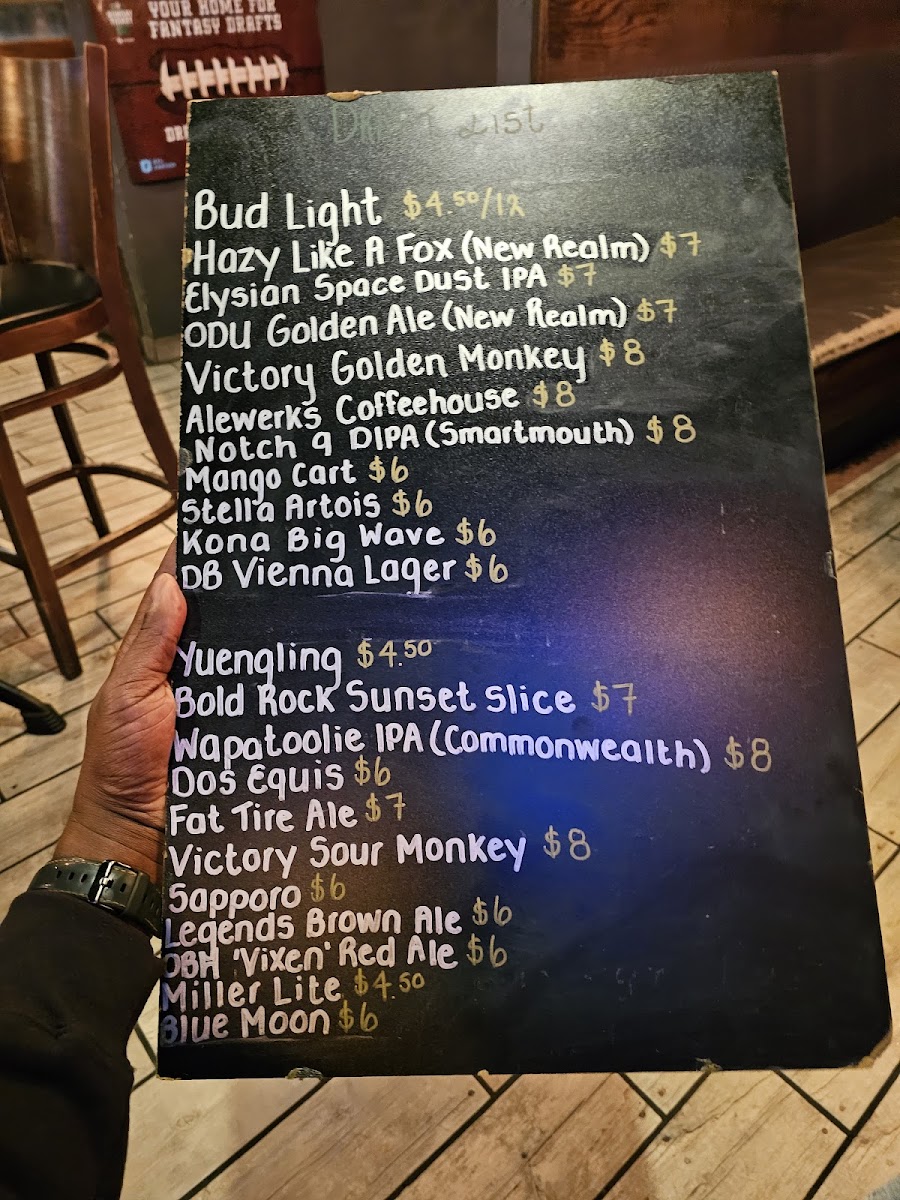 YOUR HOME FOR
FANTASY DRAFTS
List
Bud Light $4.50/12
Hazy Like A Fox (New Realm) $7
Elysian Space Dust IPA $7
ODU Golden Ale (New Realm) $7
Victory Golden Monkey $8
Alewerks Coffeehouse $8
Notch 9 DIPA (Smartmouth) $8
Mango Cart $6
Stella Artois $6
Kona Big Wave $6
DB Vienna Lager $6
Yuengling $4.50
Bold Rock Sunset Slice $7
Wapatoolie IPA (Commonwealth) $8
Dos Equis $6
Fat Tire Ale $7
Victory Sour Monkey $8
Sapporo $6
Legends Brown Ale $6
OBH 'Vixen' Red Ale $6
Miller Lite $4.50
Blue Moon $6